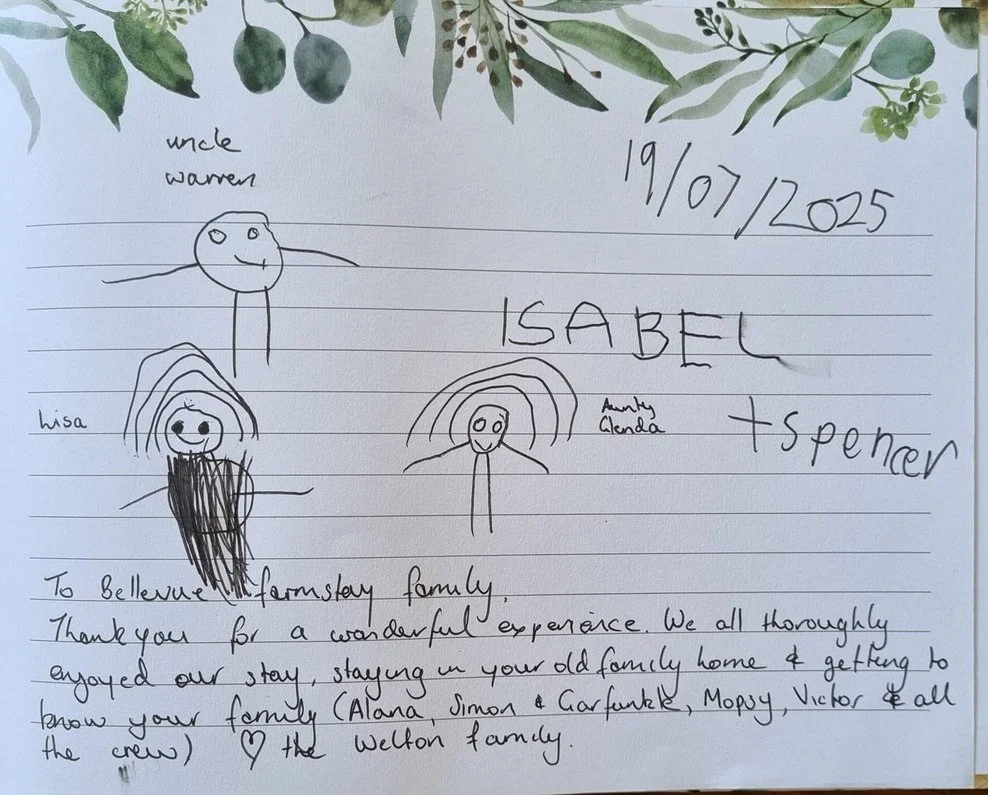 uncle
warren
19/07/2025
ISABEL
Lisa
Aunty
Glenda
+ Spencer
To Bellevue farmstay family,
Thank you for a wonderful experience. We all thoroughly
enjoyed our stay, staying in your old family home & getting to
know your family (Alana, Simon & Garfunkle, Mopsy, Victor & all
the crew) ♡ the Welton family.